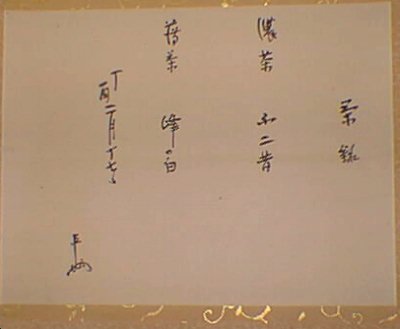 茶銘
濃茶 不二昔
薄茶 峰の白
丁酉二月十七日